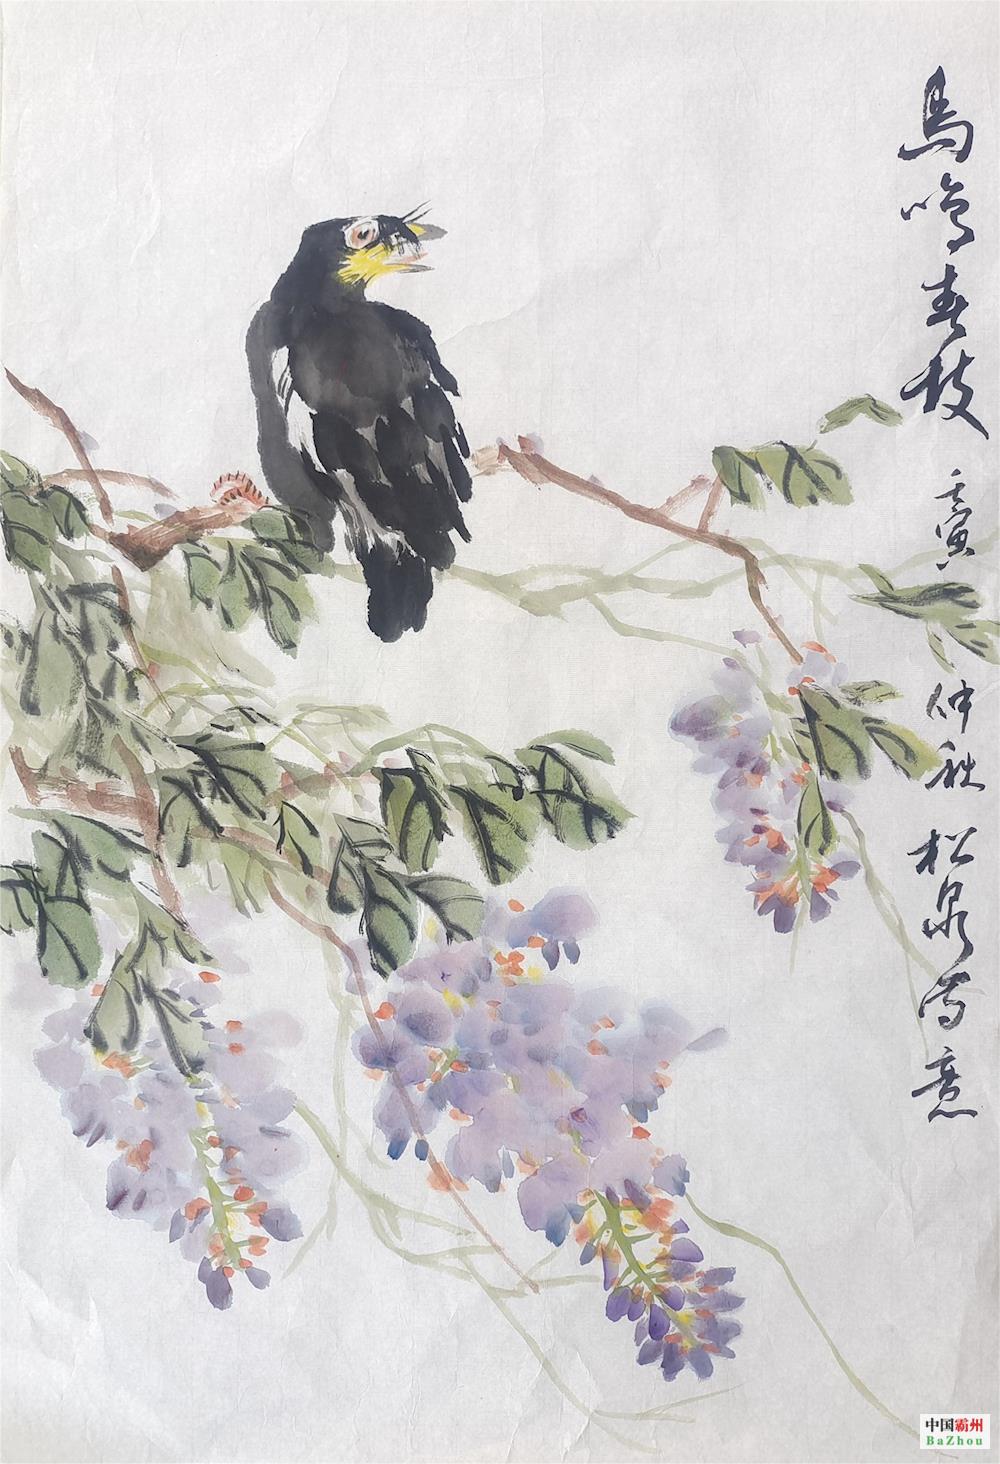 鳥鸣春枝 壬寅 仲秋 松泉写意
中国霸州
BaZhou